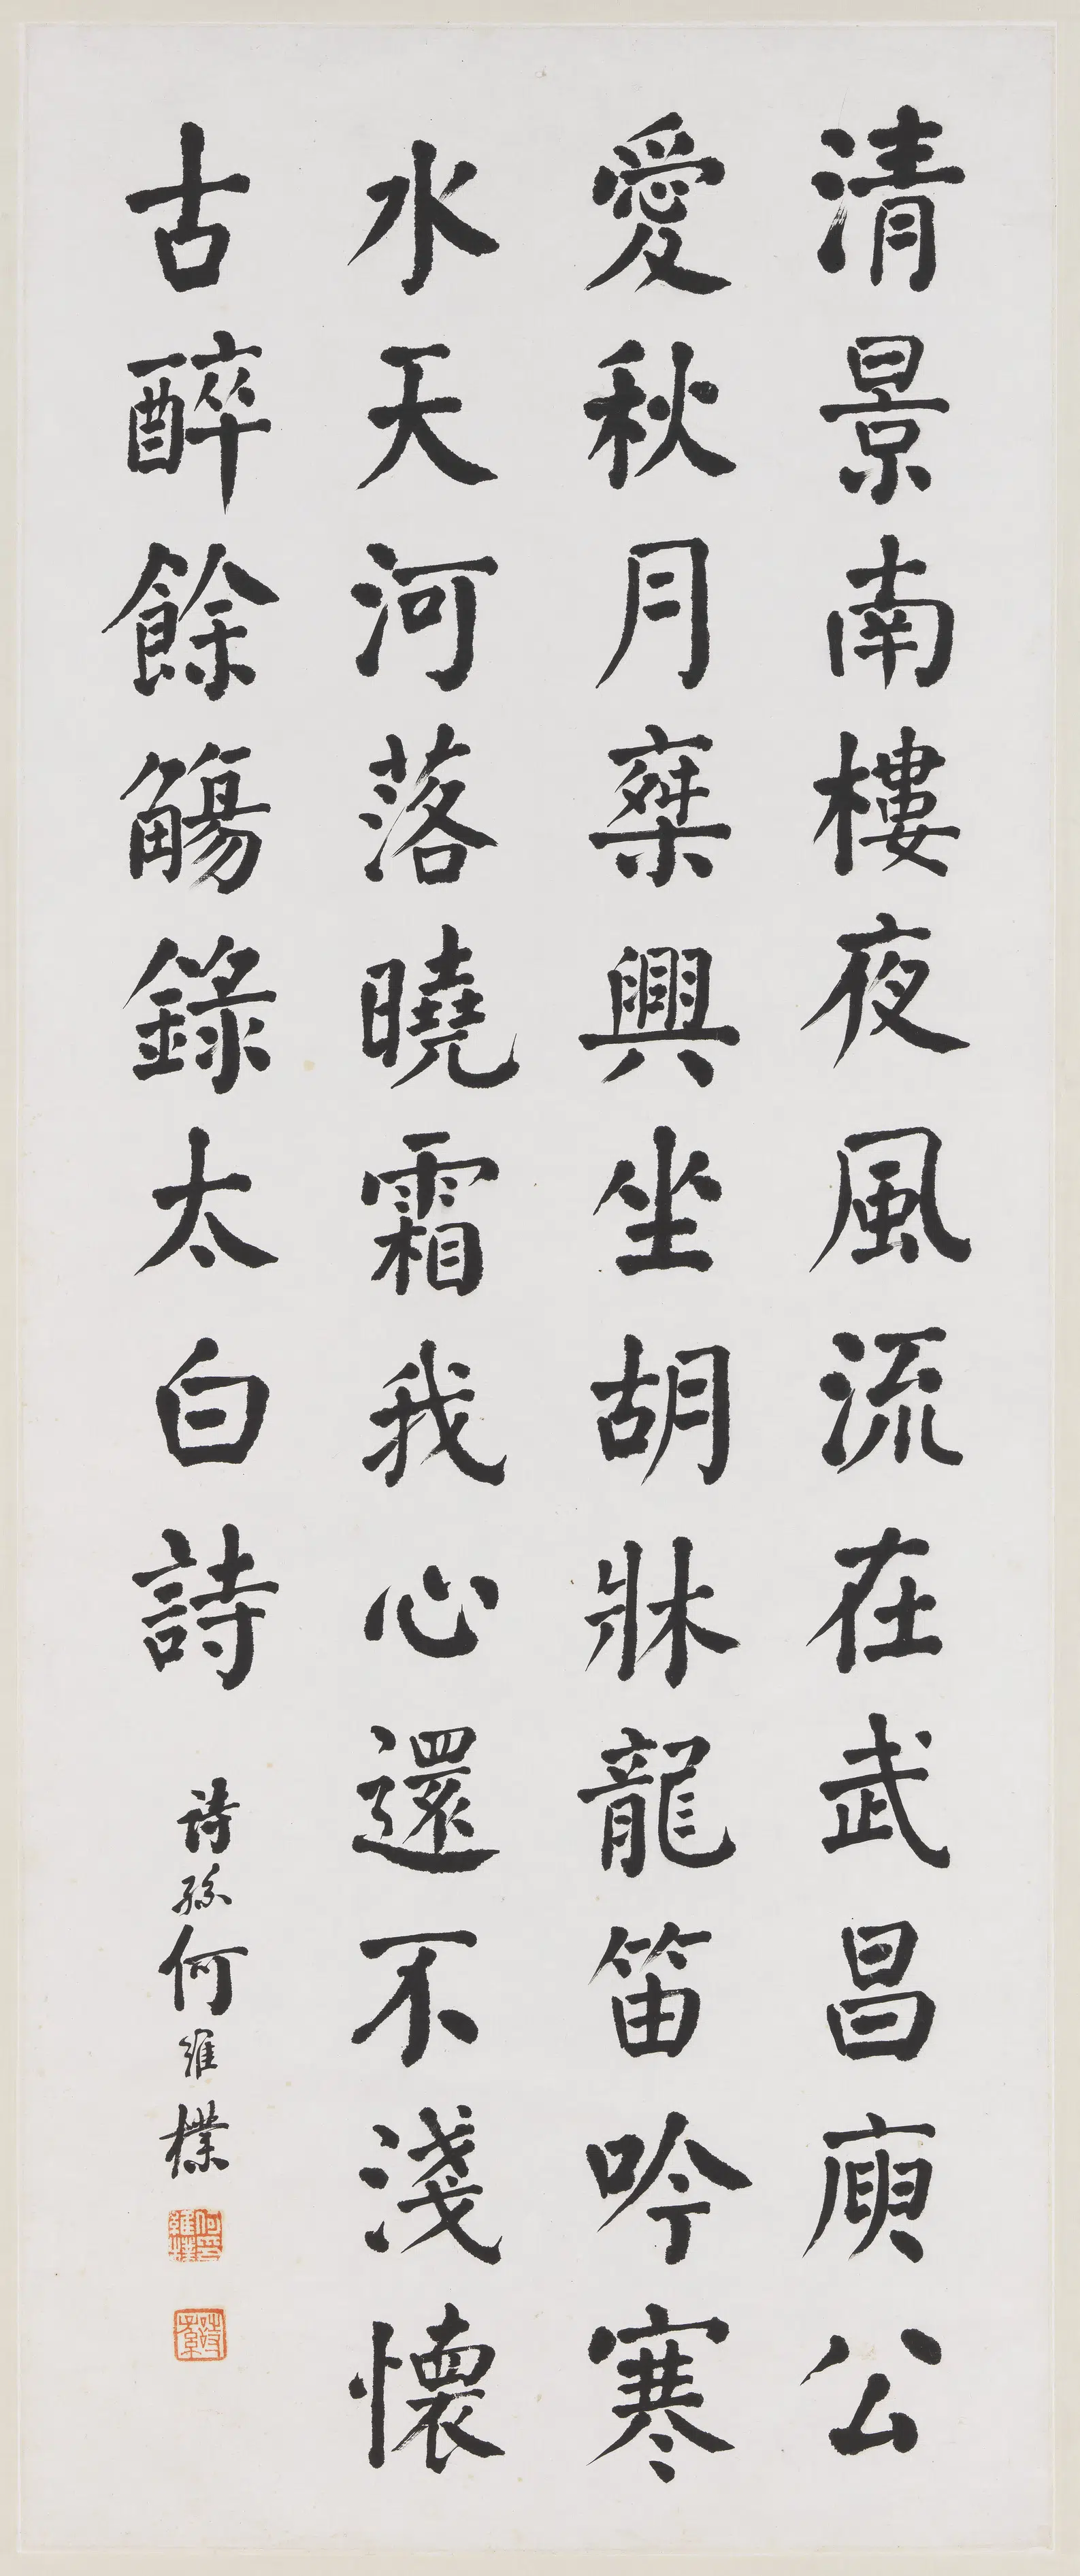 清景南樓夜風流在武昌庾公
愛秋月椉興坐胡牀龍笛吟寒
水天河落曉霜我心還不淺懷
古醉餘觴錄太白詩
詩孫何維樸
何維樸印
詩孫